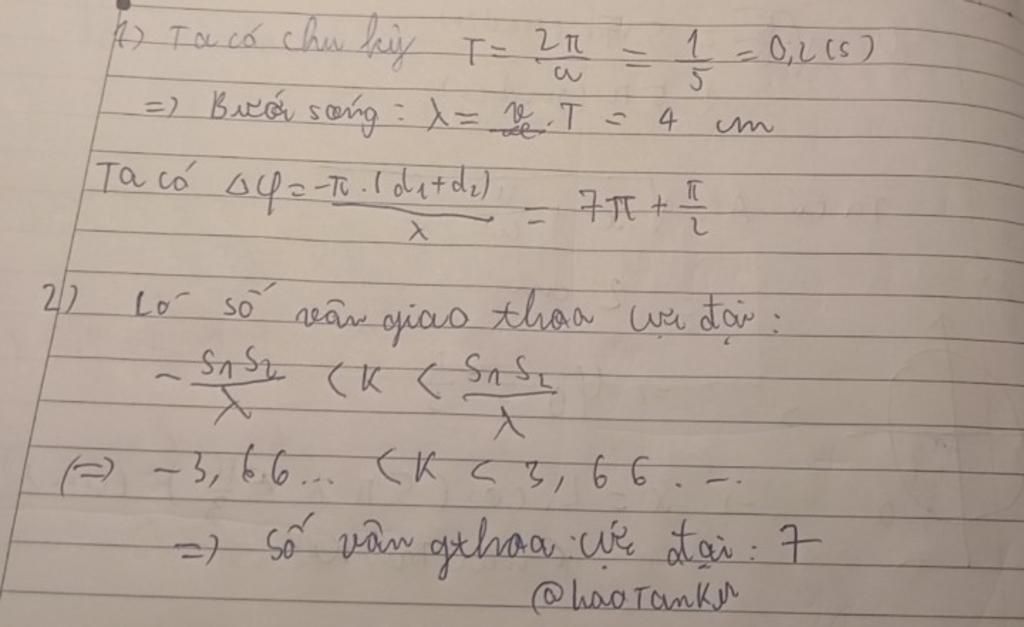 1) Ta có chu kỳ T = 2π/ω = 1/5 = 0,2 (s)
=) Bước sóng : λ = v . T = 4 cm
Ta có Δφ = -π . (d1+d2)/λ = 7π + π/2
2) Có số vân giao thoa cực đại :
- S1S2/λ < K < S1S2/λ
(=) -3,66... < K < 3,66...
=) số vân gthoa cực đại : 7